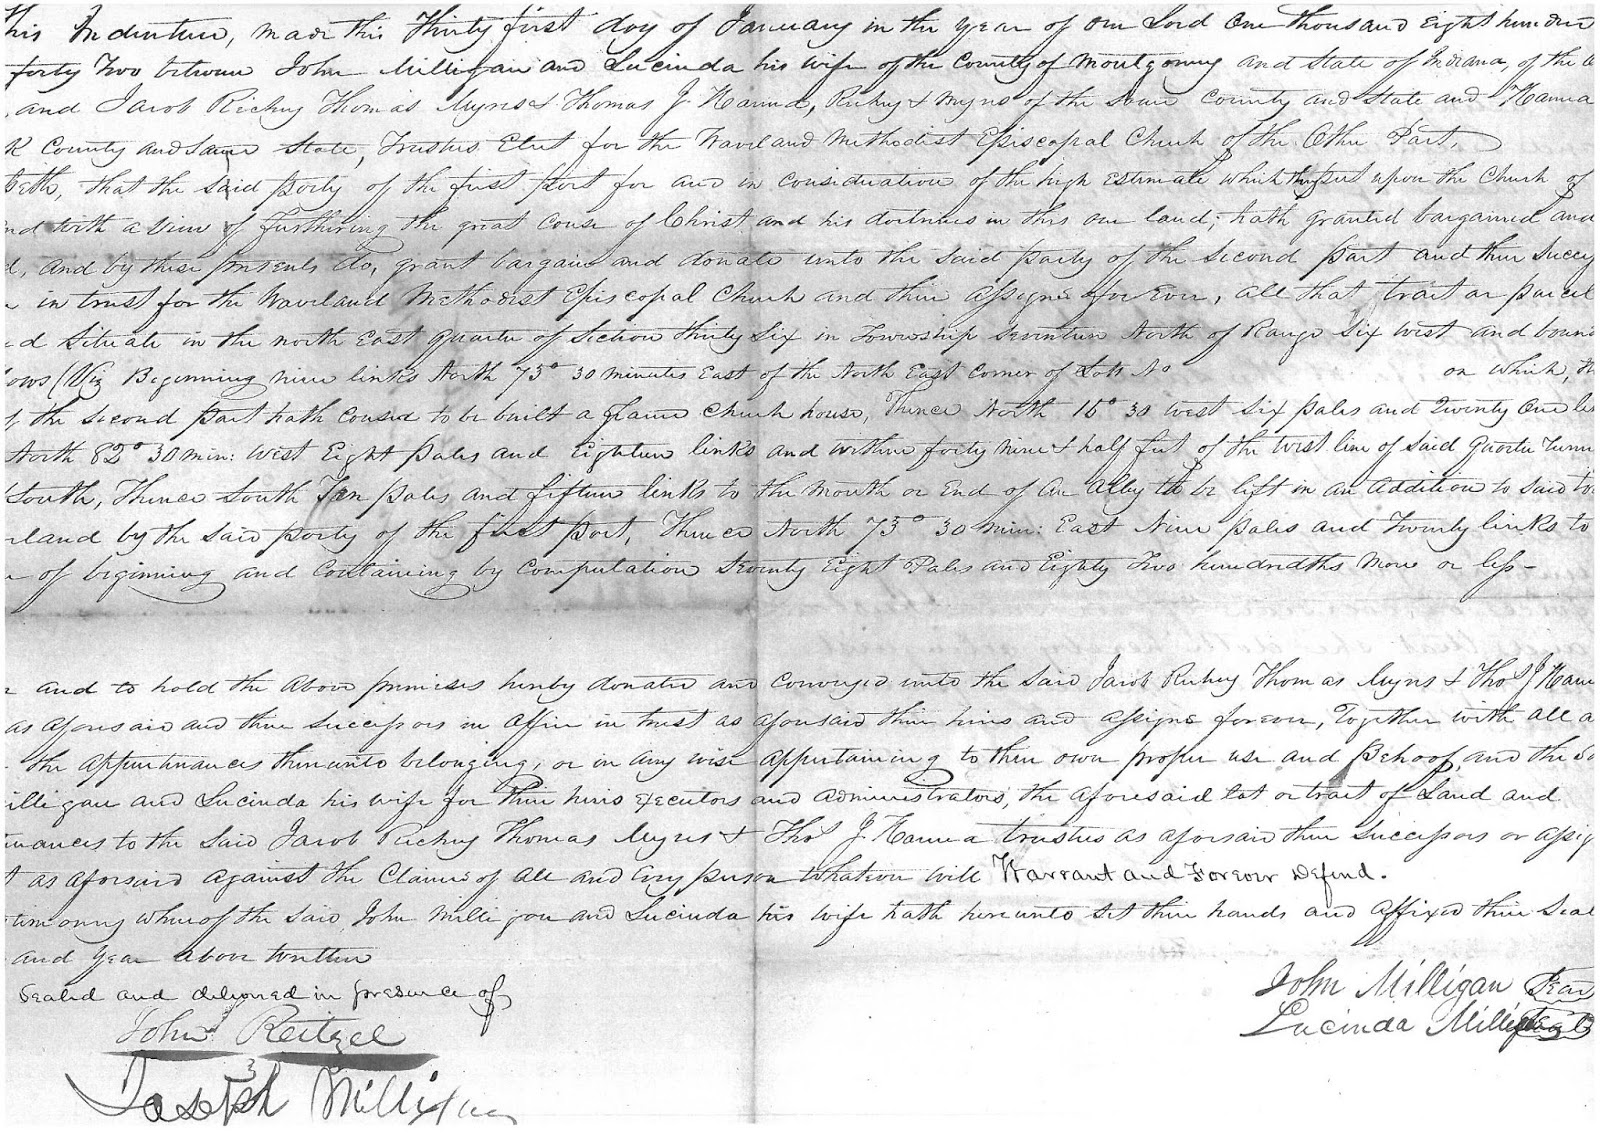 his Indenture, made this Thirty first day of January in the year of our Lord One thousand Eight hundre
forty Two between John Milligan and Lucinda his wife of the County of Montgomery and State of Indiana, of the
and Jacob Richey Thomas Myres & Thomas J Hanna, Richey & Myres of the same County and State and Hanna
k County and same State, Trustees Elect for the Waveland Methodist Episcopal Church of the Other Part,
seth, that the said party of the first part for and in consideration of the high Estimate which they set upon the Church of
nd with a view of furthering the great cause of Christ and his doctrines in this our land; hath granted bargained and
d, and by these presents do, grant bargain and donate unto the said party of the second part and their Succes
in trust for the Waveland Methodist Episcopal Church and their assigns forever, all that trait or parcel
d Situate in the north East quarter of Section thirty Six in Township Seventeen North of Range Six west and boun
lows (Viz Beginning nine links North 73° 30 minutes East of the North East Corner of Lott No on which, th
f the second part hath caused to be built a frame Church house, Thence North 16° 30 west Six poles and Twenty One lin
North 82° 30 min: West Eight poles and Eighteen links and within forty nine & half feet of the West line of said quarter
South, Thence South Ten poles and fifteen links to the mouth or End of an Alley to be left in an addition to said
land by the said party of the first part, Thence North 73° 30 min: East Nine poles and Twenty links to
of beginning and Containing by Computation Seventy Eight Poles and Eighty Two hundredths more or less -
and to hold the above premises hereby donated and Conveyed unto the said Jacob Richey Thomas Myres & Thos J Hann
as aforesaid and their Successors in Office in trust as aforesaid their heirs and assigns forever, Together with all a
the appurtinances thereunto belonging, or in any wise appertaining to their own proper use and Behoof, and the Sa
illigan and Lucinda his wife for their heirs executors and administrators, the aforesaid lot or trait of Land and
inances to the said Jacob Richey Thomas Myres & Thos J Hanna trustees as aforesaid their successors or assig
t as aforesaid against the Claims of all and Every person whatever will Warrant and Forever Defend.
timony whereof the said John Milligan and Lucinda his wife hath hereunto set their hands and affixed their Seal
and year above written
Sealed and delivered in presence of
John Milligan Seal
Lucinda Milligan Seal
John Reitzel
Joseph Milligan